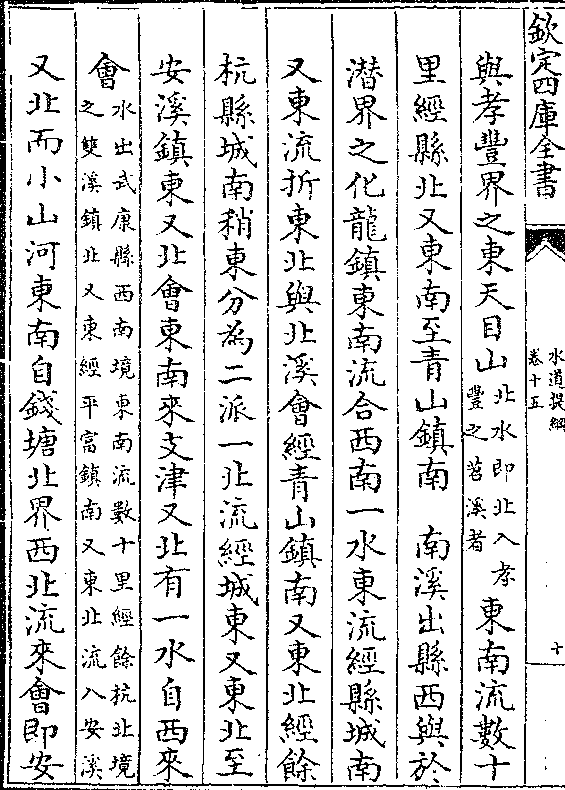 欽定四庫全書
水道提綱
卷十五
十
與孝豐界之東天目山北水即北入孝豐之苕溪者東南流數十
里經縣北又東南至青山鎮南　南溪出縣西與於
潛界之化龍鎮東南流合西南一水東流經縣城南
又東流折東北與北溪會經青山鎮南又東北經餘
杭縣城南稍東分為二派一北流經城東又東北至
安溪鎮東又北會東南來支津又北有一水自西來
會水出武康縣西南境東南流數十里經餘杭北境之雙溪鎮北又東經平富鎮南又東北流入安溪
又北而小山河東南自錢塘北界西北流來會即安